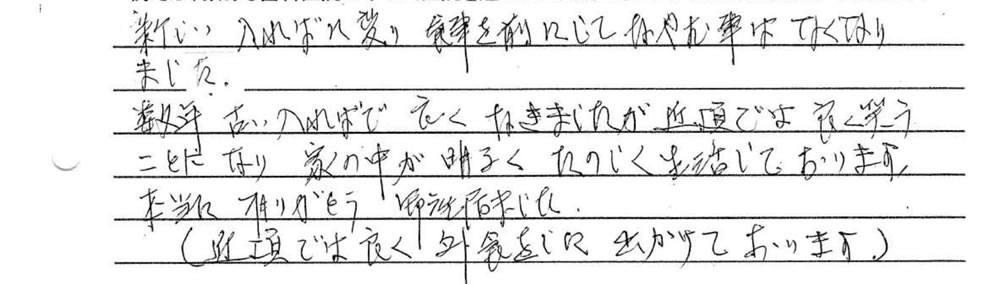 新しい入ればに変り 食事を前にしてなやむ事はなくなり
ました.
数年 古い入ればで 良く なきましたが 近頃では 良く笑う
ことになり 家の中が 明るく たのしく生活しております
本当に ありがとう 御座居ました.
(近頃では良く 外食をしに 出かけて おります.)